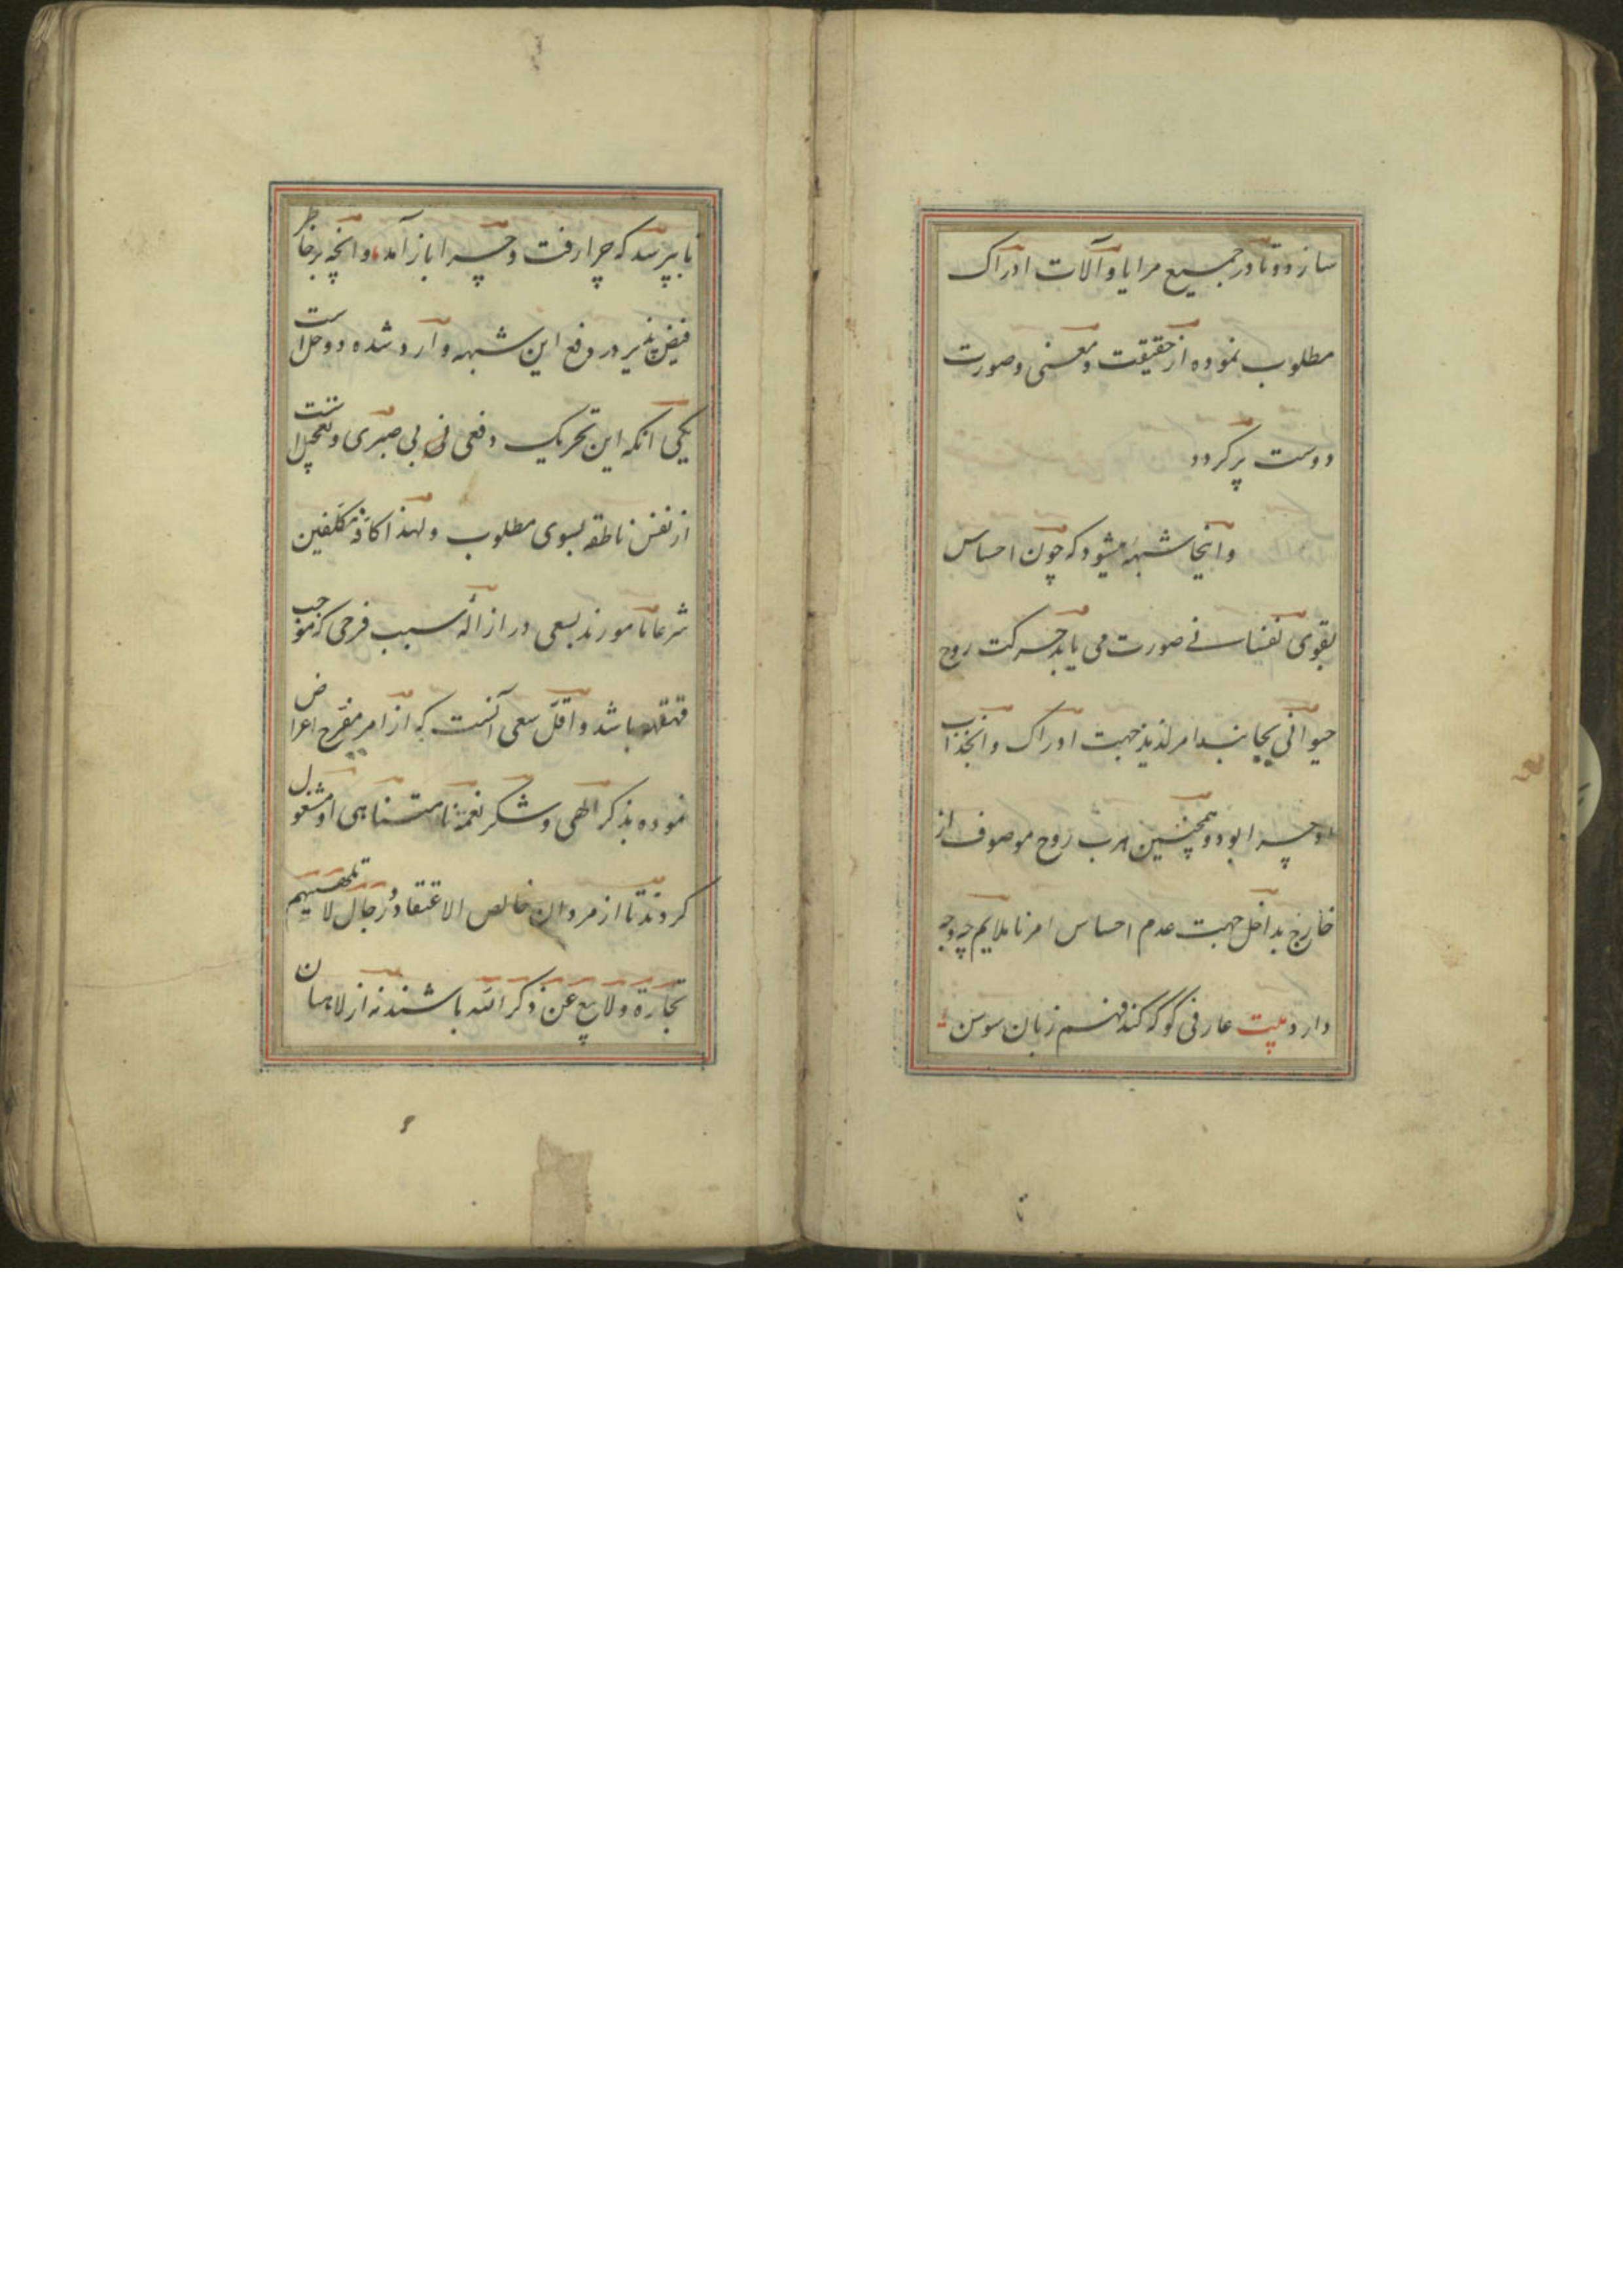 سازد و تا در جمیع مرایا و آلات ادراک
مطلوب نموده از حقیقت و معنی و صورت
دوست پر کردد
و اینجا شبهه میشود که چون احساس
بقوی نفسانی صورت می یابد حرکت روح
حیوانی بجانب امر لذیذ جهت ادراک و انجذاب
او چرا بود و همچنین هرب روح موصوف از
خارج بداخل جهت عدم احساس امر ناملایم چه وجه
دارد بیت عارفی کو که کند فهم زبان سوسن
تا بپرسد که چرا رفت و چرا باز آمد و انچه بر خاطر
فیض پذیر در دفع این شبهه وارد شده دو حل است
یکی انکه این تحریک دفعی بی صبری و تعجیل است
از نفس ناطقه بسوی مطلوب و لهذا کافه مکلفین
شرعا مامورند بسعی در ازاله سبب فرحی که موجب
قهقهه باشد و اقل سعی آنست که از امر مفرح اعراض
نموده بذکر الهی و شکر نعمة نامتناهی او مشغول
کردند تا از مردان خالص الاعتقاد و رجال لا تلهیهم
تجارة ولا بیع عن ذکر الله باشند نه از لاهیان